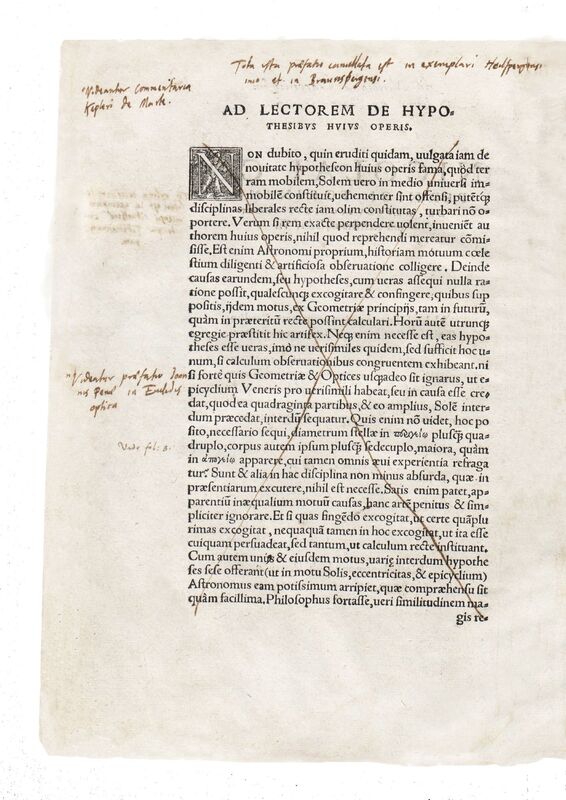 Tota ista præfatio cancellata est in exemplari
imo et in Braunsbergensi.
Videantur Commentaria
Kepleri de Marte.
AD LECTOREM DE HYPO-
THESIBVS HVIVS OPERIS.
NON dubito, quin eruditi quidam, uulgata iam de
nouitate hypotheseon huius operis fama, quòd ter
ram mobilem, Solem uero in medio uniuersi im-
mobilẽ constituit, uehementer sint offensi, putẽtq;
disciplinas liberales recte iam olim constitutas, turbari nõ o-
portere. Verum si rem exacte perpendere uolent, inueniẽt au
thorem huius operis, nihil quod reprehendi mereatur cõmi-
sisse. Est enim Astronomi proprium, historiam motuum cœle
stium diligenti & artificiosa obseruatione colligere. Deinde
causas earundem, seu hypotheses, cum ueras assequi nulla ra-
tione possit, qualescunq; excogitare & confingere, quibus sup
positis, ijdem motus, ex Geometriæ principijs, tam in futurũ,
quàm in præteritũ recte possint calculari. Horũ autẽ utrunq;
egregie præstitit hic artifex. Neq; enim necesse est, eas hypo-
theses esse ueras, imò ne uerisimiles quidem, sed sufficit hoc u-
num, si calculum obseruationibus congruentem exhibeant. ni
si fortè quis Geometriæ & Optices usqueadeo sit ignarus, ut e-
picyclium Veneris pro uerisimili habeat, seu in causa esse cre-
dat, quod ea quadraginta partibus, & eo amplius, Solẽ inter-
dum præcedat, interdũ sequatur. Quis enim nõ uidet, hoc po
sito, necessario sequi, diametrum stellæ in περιγείῳ plusq̃ qua-
druplo, corpus autem ipsum plusq̃ sedecuplo, maiora, quàm
in ἀπογείῳ apparere, cui tamen omnis æui experientia refraga
tur? Sunt & alia in hac disciplina non minus absurda, quæ in
præsentiarum excutere, nihil est necesse. Satis enim patet, ap-
parentiũ inæqualium motuũ causas, hanc artẽ penitus & sim-
pliciter ignorare. Et si quas fingẽdo excogitat, ut certe quãplu
rimas excogitat, nequaquã tamen in hoc excogitat, ut ita esse
cuiquam persuadeat, sed tantum, ut calculum recte instituant.
Cum autem unius & eiusdem motus, uariæ interdum hypothe
ses sese offerant (ut in motu Solis, eccentricitas, & epicyclium)
Astronomus eam potissimum arripiet, quæ compræhensu sit
quàm facillima. Philosophus fortasse, ueri similitudinem ma-
gis re-
Videatur præfatio Joan
nis Penæ in Euclidis
optica
Vide fol: 8.